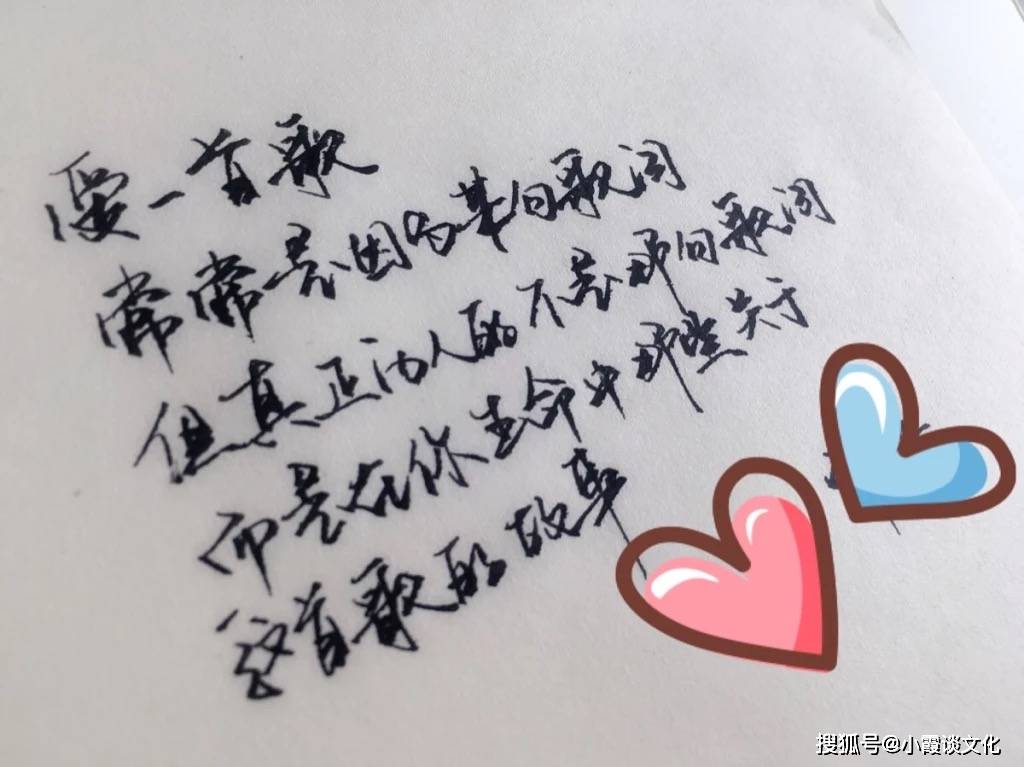 爱一首歌
常常是因为某句歌词
但真正动人的不是那句歌词
而是在你生命中那些关于
这首歌的故事
搜狐号@小霞谈文化